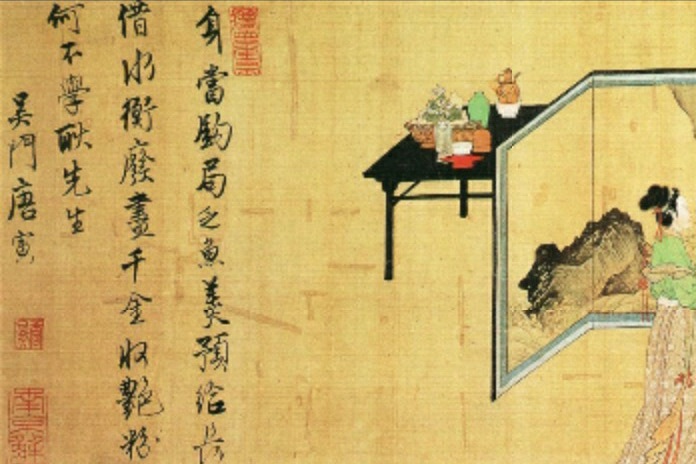 身當鈞局乏魚羹預給長
借水衡廢盡千金收艷粉
何不學耿先生
吳門唐寅
南京解